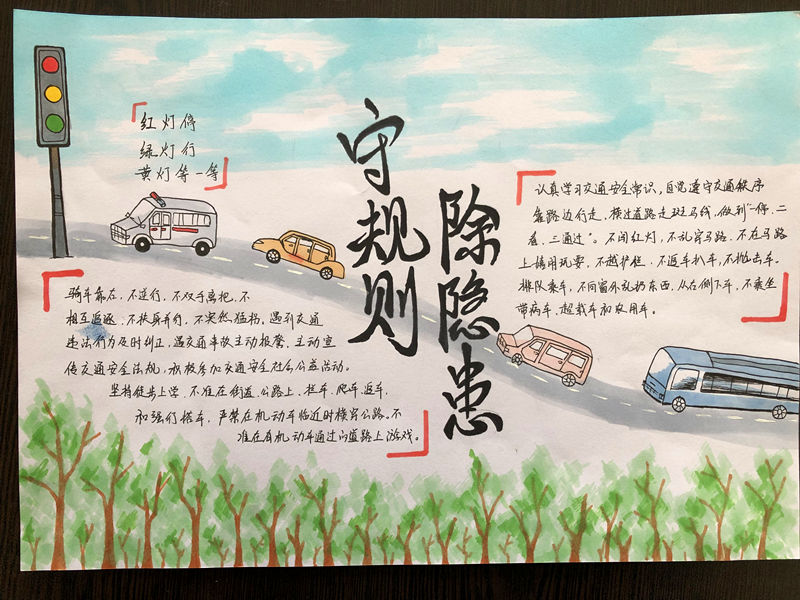 红灯停
绿灯行
黄灯等一等
守规则
除隐患
认真学习交通安全常识，自觉遵守交通秩序
靠路边行走、横过道路走斑马线，做到“一停、二
看、三通过”。不闯红灯，不乱穿马路、不在马路
上嬉闹玩耍，不越护栏、不追车扒车，不抛击车。
排队乘车，不向窗外乱扔东西，从右侧下车，不乘坐
带病车、超载车和农用车。
骑车靠右，不逆行，不双手离把，不
相互追逐、不扶肩并行，不突然猛拐，遇到交通
违法行为及时纠正，遇交通事故主动报警，主动宣
传交通安全法规，积极参加交通安全社会公益活动。
坚持徒步上学，不准在街道、公路上，拦车、爬车、追车，
和强行搭车，严禁在机动车临近时横穿公路。不
准在有机动车通过的道路上游戏。